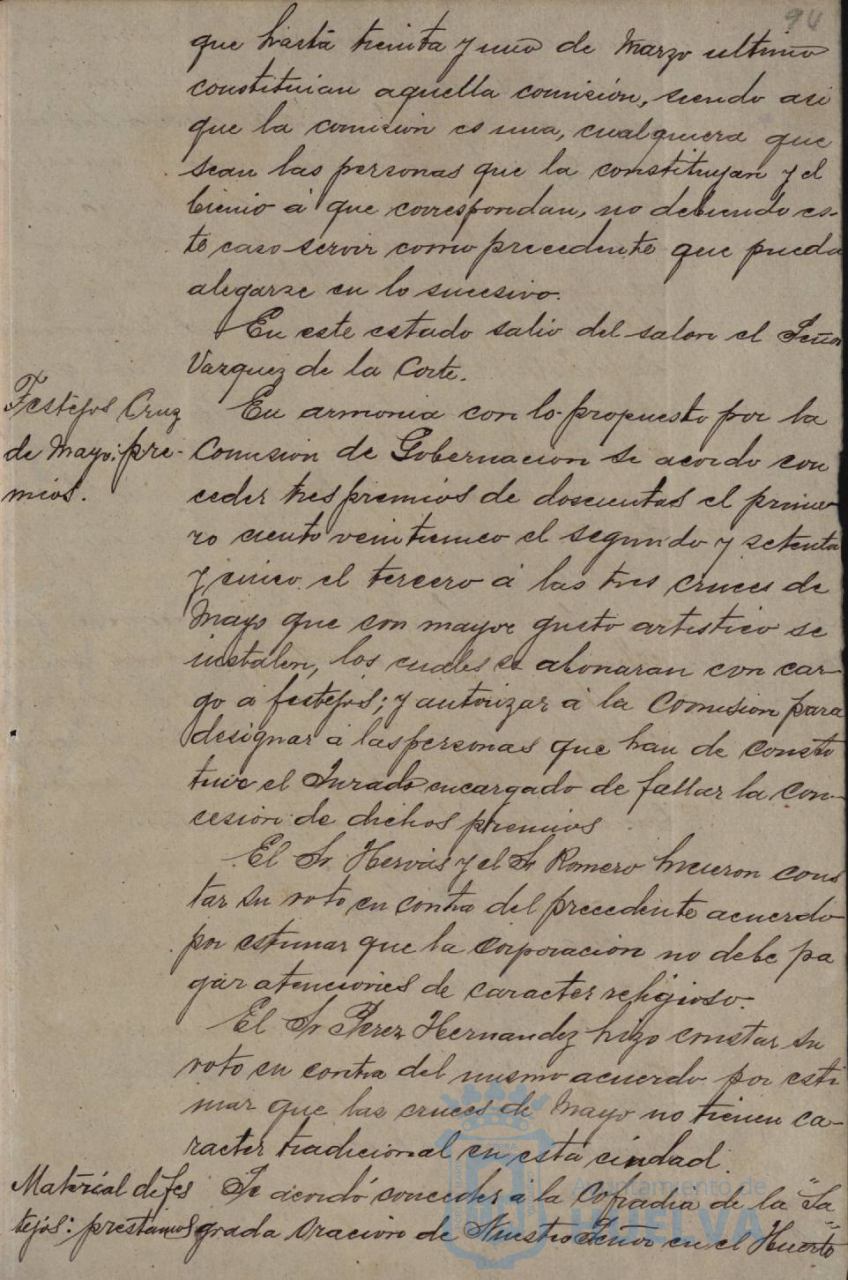 94
que hasta treinta y uno de Marzo ultimo
constituian aquella comisión, siendo asi
que la comisión es una, cualquiera que
sean las personas que la constituyan y el
bienio á que correspondan, no debiendo es-
te caso servir como precedente que pueda
alegarse en lo sucesivo.
En este estado salio del salon el Señor
Vazquez de la Corte.
Festejos Cruz
de Mayo: pre-
mios.
En armonia con lo propuesto por la
Comision de Gobernacion se acordo con
ceder tres premios de doscientas el prime-
ro ciento veinticinco el segundo y setenta
y cinco el tercero á las tres cruces de
Mayo que con mayor gusto artistico se
instalen, los cuales se abonaran con car-
go á festejos; y autorizar á la Comision para
designar á las personas que han de consti
tuir el Jurado encargado de fallar la con-
cesion de dichos premios
El Sr Hervás y el Sr Romero hicieron cons
tar su voto en contra del precedente acuerdo
por estimar que la Corporación no debe pa
gar atenciones de caracter religioso.
El Sr Perez Hernandez hizo constar su
voto en contra del mismo acuerdo por esti
mar que las cruces de Mayo no tienen ca-
racter tradicional en esta ciudad.
Material de fes
tejos: prestamos
Se acordó conceder á la Cofradia de la "Sa-
grada Oracion de Nuestro Señor en el Huerto"
Ayuntamiento de
HUELVA